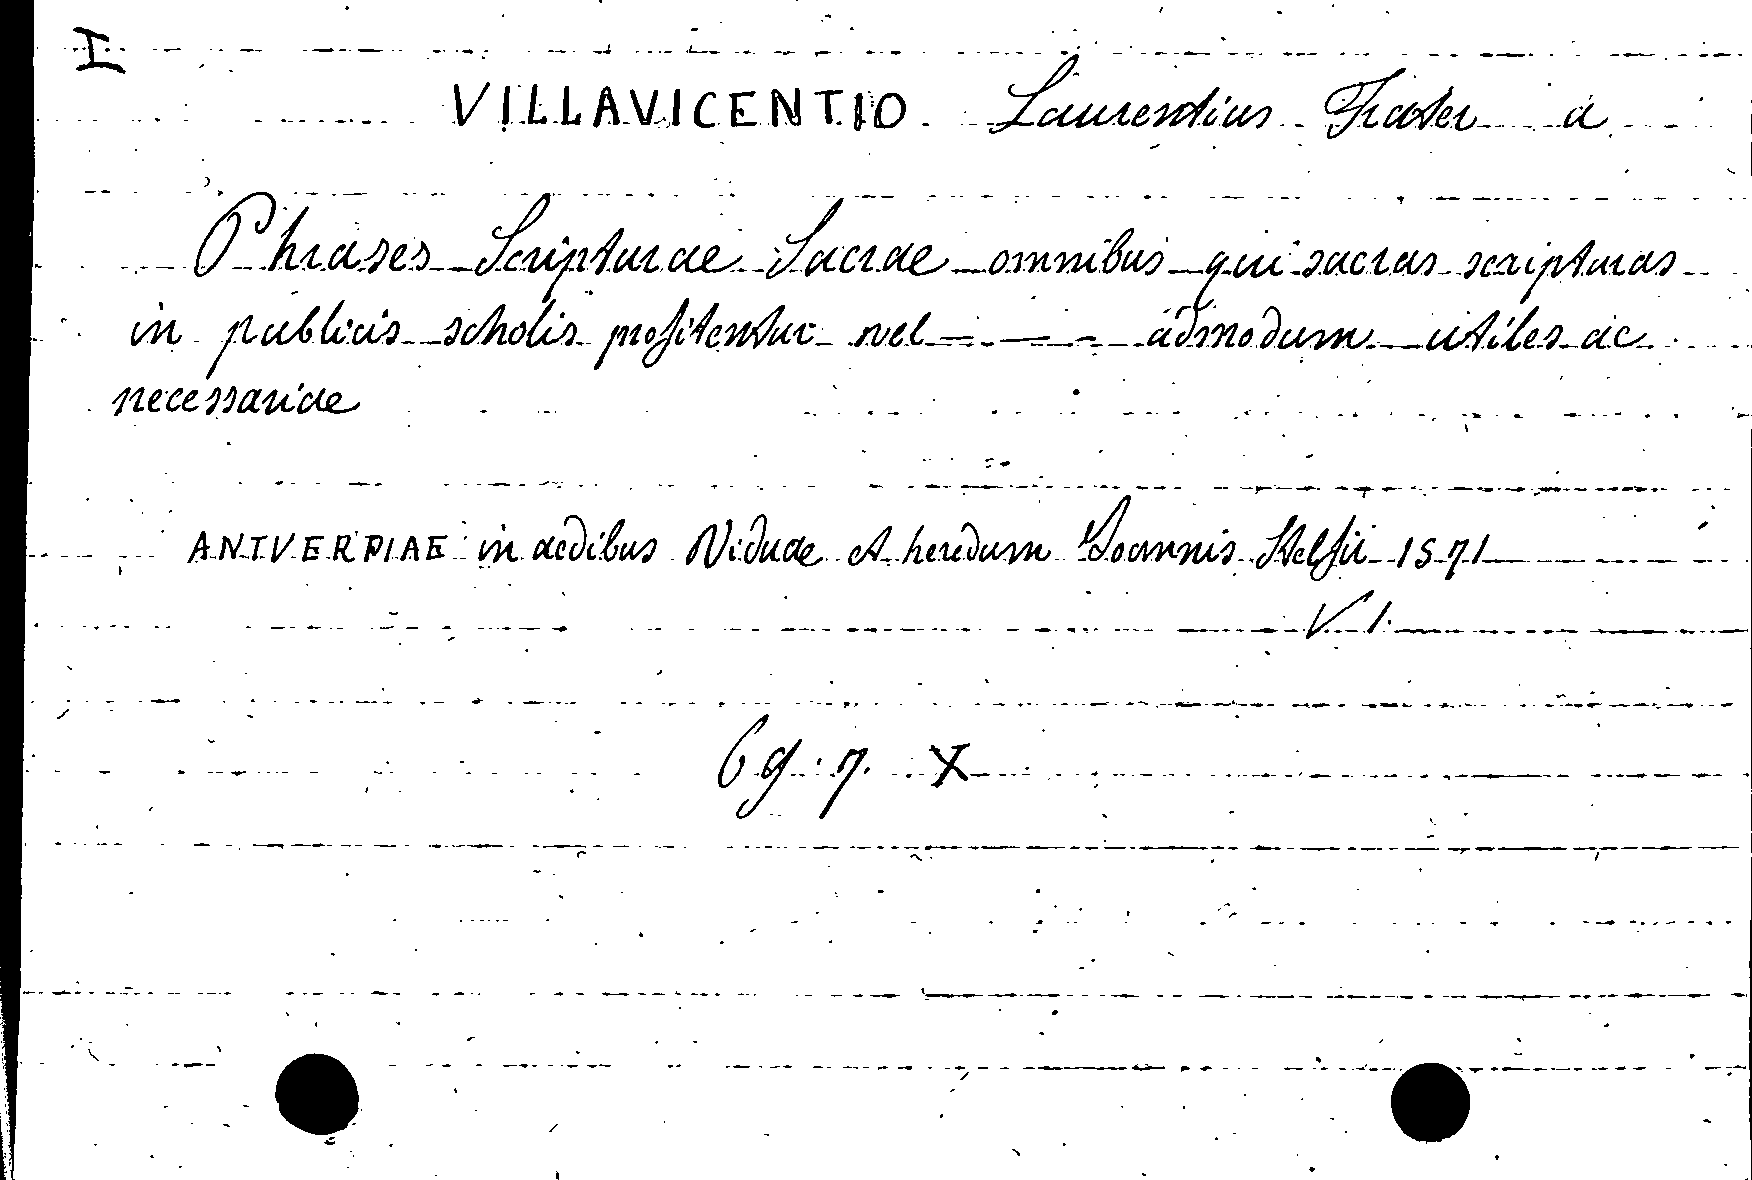 I
VILLAVICENTIO Laurentius Frater a
Phrases Scripturae Sacrae omnibus qui sacras scripturas
in publicis scholis profitentur vel — — - admodum utiles ac
necessariae
ANTVERPIAE in aedibus Viduae et heredum Joannis Stelsii 1571
V 1.
6 g. 7. X